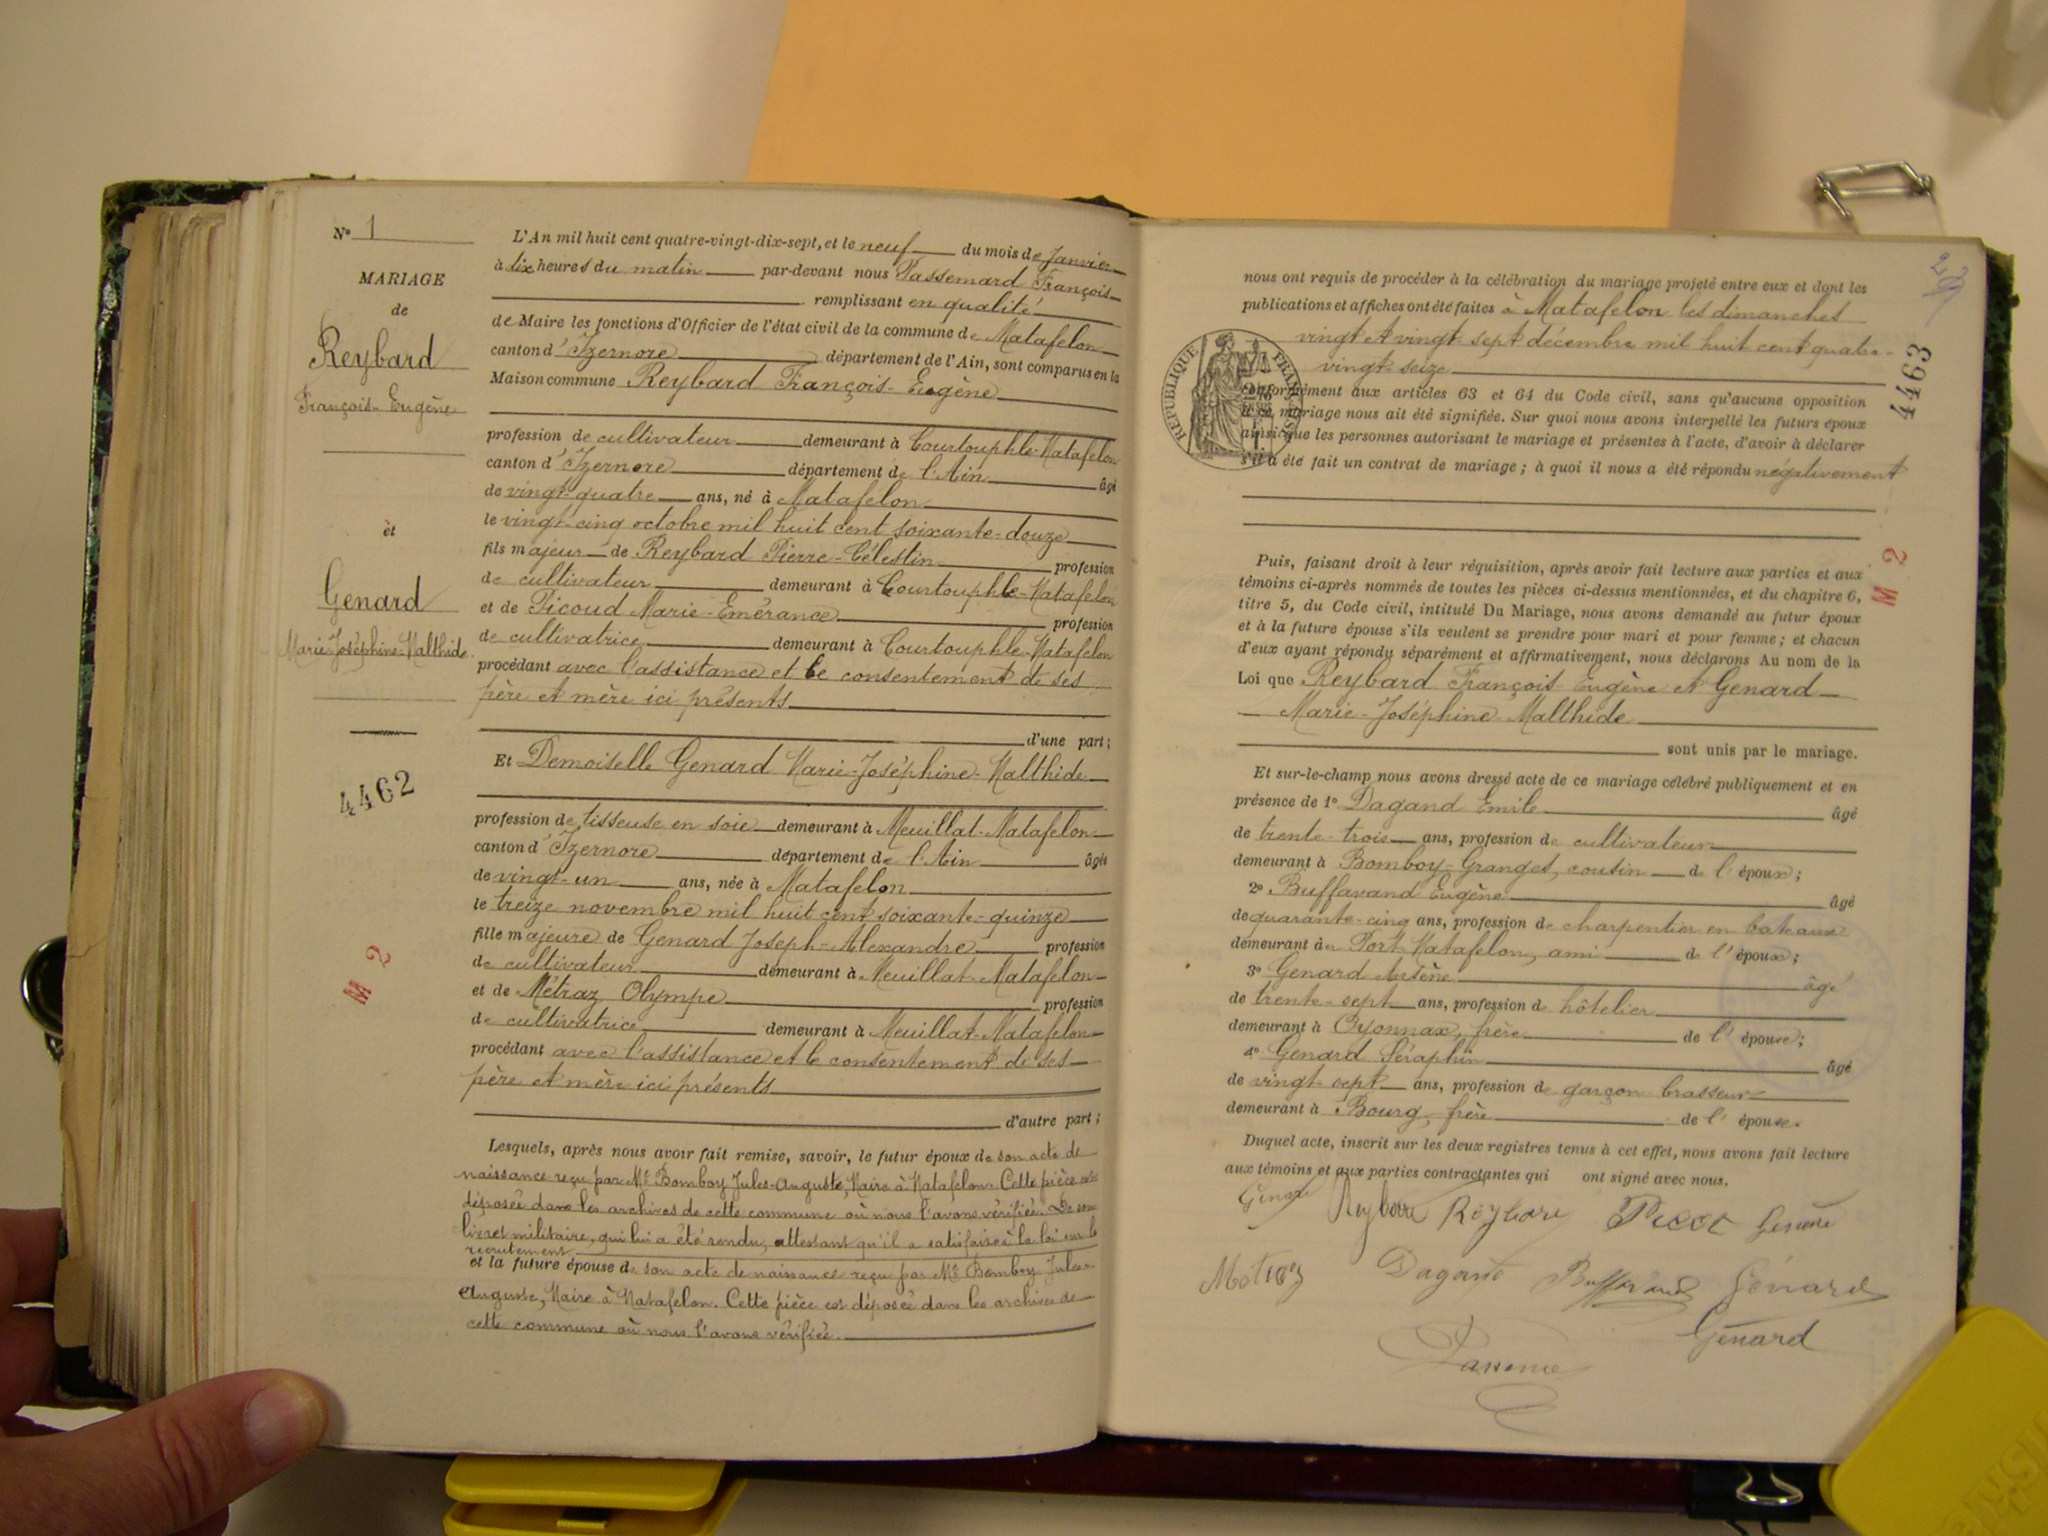 N° 1
MARIAGE
de
Reybard
François-Eugène
et
Genard
Marie-Joséphine-Malthide
4462
M 2
L'An mil huit cent quatre-vingt-dix-sept, et le neuf du mois de Janvier
à dix heures du matin par-devant nous Passemard François
remplissant en qualité
de Maire les fonctions d'Officier de l'état civil de la commune de Matafelon
canton d'Izernore département de l'Ain, sont comparus en la
Maison commune Reybard François-Eugène
profession de cultivateur demeurant à Courtouphle-Matafelon
canton d'Izernore département de l'Ain âgé
de vingt-quatre ans, né à Matafelon
le vingt-cinq octobre mil huit cent soixante-douze
fils majeur de Reybard Pierre-Célestin profession
de cultivateur demeurant à Courtouphle-Matafelon
et de Picoud Marie-Emérance profession
de cultivatrice demeurant à Courtouphle-Matafelon
procédant avec l'assistance et le consentement de ses
père et mère ici présents
d'une part;
Et Demoiselle Genard Marie-Joséphine-Malthide
profession de tisseuse en soie demeurant à Meuillat-Matafelon
canton d'Izernore département de l'Ain âgée
de vingt-un ans, née à Matafelon
le treize novembre mil huit cent soixante-quinze
fille majeure de Genard Joseph-Alexandre profession
de cultivateur demeurant à Meuillat-Matafelon
et de Métraz Olympe profession
de cultivatrice demeurant à Meuillat-Matafelon
procédant avec l'assistance et le consentement de ses
père et mère ici présents
d'autre part;
Lesquels, après nous avoir fait remise, savoir, le futur époux de son acte de
naissance reçu par Mr Bomboy Jules-Auguste, Maire à Matafelon. Cette pièce est
déposée dans les archives de cette commune où nous l'avons vérifiée. De son
livret militaire, qui lui a été rendu, attestant qu'il a satisfait à la loi sur le
recrutement
et la future épouse de son acte de naissance reçu par Mr Bomboy Jules-
Auguste, Maire à Matafelon. Cette pièce est déposée dans les archives de
cette commune où nous l'avons vérifiée.
nous ont requis de procéder à la célébration du mariage projeté entre eux et dont les
publications et affiches ont été faites à Matafelon les dimanches
vingt et vingt-sept décembre mil huit cent quatre-
vingt-seize
conformément aux articles 63 et 64 du Code civil, sans qu'aucune opposition
à ce mariage nous ait été signifiée. Sur quoi nous avons interpellé les futurs époux
ainsi que les personnes autorisant le mariage et présentes à l'acte, d'avoir à déclarer
s'il a été fait un contrat de mariage; à quoi il nous a été répondu négativement
RÉPUBLIQUE FRANÇAISE
4463
M 2
Puis, faisant droit à leur réquisition, après avoir fait lecture aux parties et aux
témoins ci-après nommés de toutes les pièces ci-dessus mentionnées, et du chapitre 6,
titre 5, du Code civil, intitulé Du Mariage, nous avons demandé au futur époux
et à la future épouse s'ils veulent se prendre pour mari et pour femme; et chacun
d'eux ayant répondu séparément et affirmativement, nous déclarons Au nom de la
Loi que Reybard François-Eugène et Genard
Marie-Joséphine-Malthide
sont unis par le mariage.
Et sur-le-champ nous avons dressé acte de ce mariage célébré publiquement et en
présence de 1° Dagand Emile âgé
de trente-trois ans, profession de cultivateur
demeurant à Bomboy-Granges, cousin de l'époux;
2° Buffavand Eugène âgé
de quarante-cinq ans, profession de charpentier en bateaux
demeurant à Port Matafelon, ami de l'époux;
3° Genard Arsène âgé
de trente-sept ans, profession de hôtelier
demeurant à Oyonnax, frère de l'épouse;
4° Genard Séraphin âgé
de vingt-sept ans, profession de garçon brasseur
demeurant à Bourg, frère de l'épouse.
Duquel acte, inscrit sur les deux registres tenus à cet effet, nous avons fait lecture
aux témoins et aux parties contractantes qui ont signé avec nous.
Reybard
Dagand
Génard
Génard